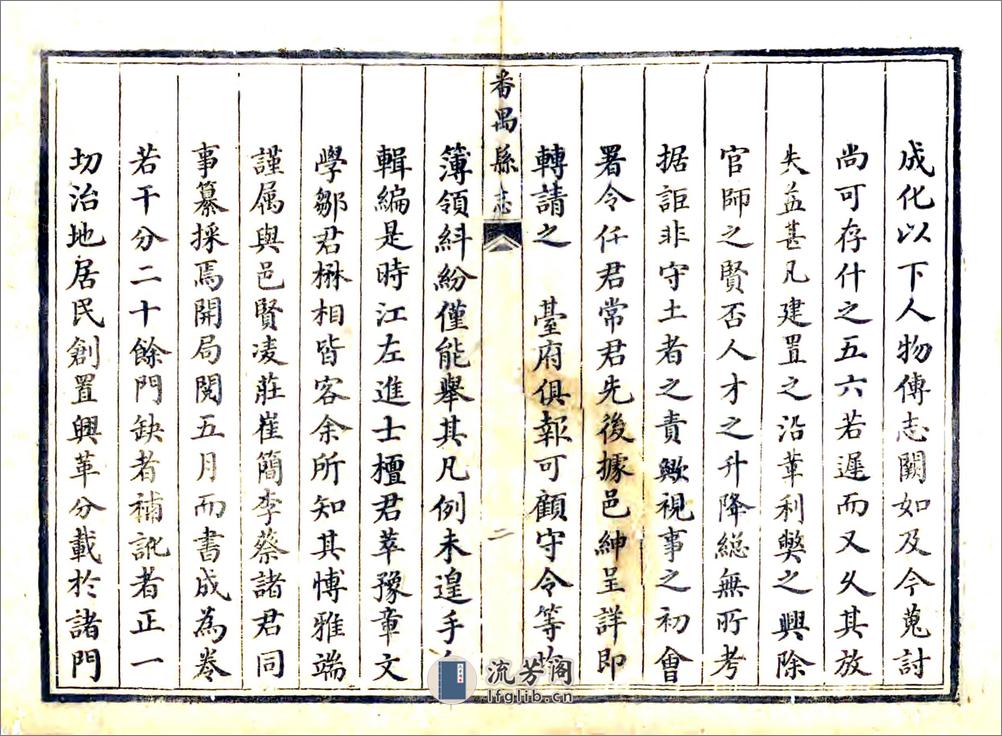 成化以下人物傳志闕如及今蒐討
尚可存什之五六若遲而又久其放
失益甚凡建置之沿革利弊之興除
官師之賢否人才之升降総無所考
据詎非守土者之責歟視事之初會
署令任君常君先後據邑紳呈詳即
轉請之　臺府俱報可顧守令等
番禺縣志
二
簿領紏紛僅能舉其凡例未遑手
輯編是時江左進士檀君萃豫章文
學鄒君楙相皆客余所知其愽雅端
謹属與邑賢凌莊崔簡李蔡諸君同
事纂採焉開局閱五月而書成為卷
若干分二十餘門缺者補訛者正一
切治地居民創置興革分載於諸門
流芳阁
lfglib.cn